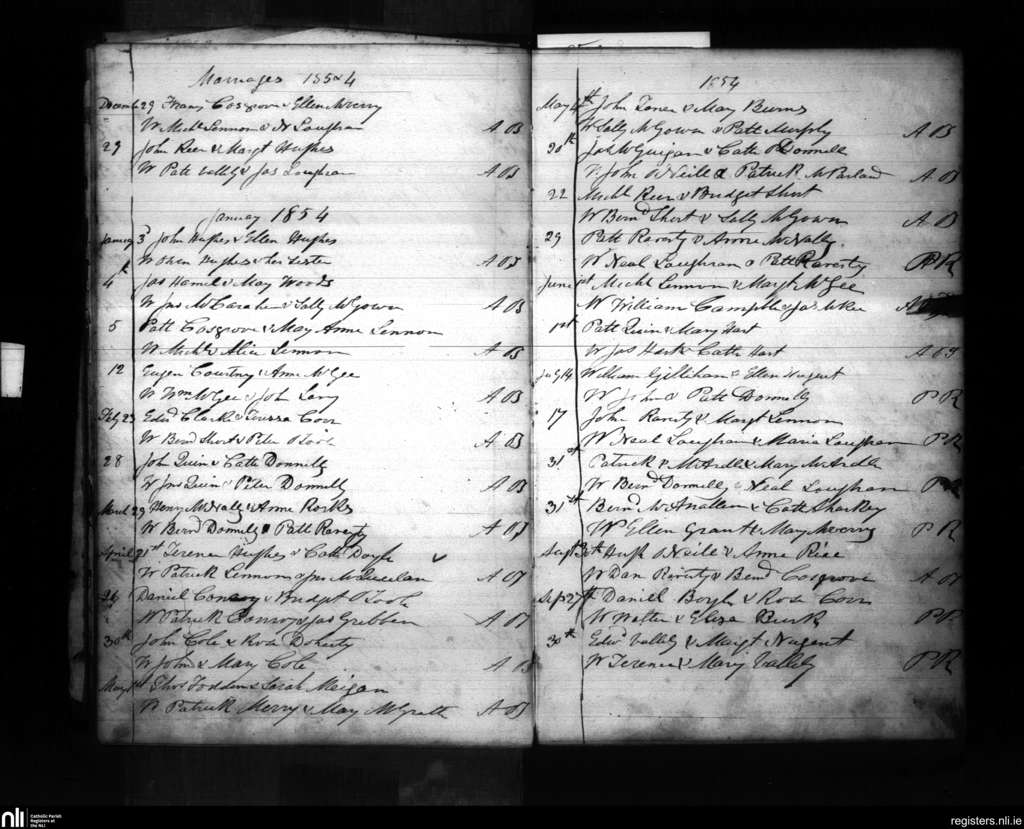 Marriages 1854
Decemb 29 Franc Cosgrove & Ellen Merry
W Michl Lennon & N Loughran A B
29 John Rice & Margt Hughes
W Patt Vallely & Jas Loughran A B
January 1854
January 3d John Hughes & Ellen Hughes
W Owen Hughes & his sister A B
4th Jas Hamil & May Woods
W Jas & Sally McGowan A B
5 Patt Cosgrove & May Anne Lennon
W Michl & Alice Lennon A B
12 Eugen Courtny & Anne McGee
W Wm McGee & John Lavy A B
Feby 23 Edwd Clarke & Teressa Corr
W Bernd Short & Peter OToole A B
28 John Quin & Cathe Donnelly
W Jas Quin & Peter Donnelly A B
March 29 Henry McNally & Anne Rorke
W Bernd Donnelly & Patt Raverty A B
April 21st Terence Hughes & Cathe Doyle
W Patrick Lennon & Jas A B
26 Daniel Conroy & Bridget OToole
W Patrick Conroy & Jas Gribben A B
30th John Cole & Rose Doherty
W John & Mary Cole A B
May 1st Thos Fodden & Sarah Meigan
W Patrick Merry & May McGrath A B
1854
May 4th John Toner & May Burns
W Sally McGowan & Patt Murphy A B
30th Jas McGuigan & Cathe ODonnell
W John ONeill & Patrick McParland A B
22 Michl Rice & Bridget Short
W Bernd Short & Sally McGowan A B
29 Patt Raverty & Anne McNally
W Neal Loughran & Patt Raverty P R
June 1st Michl Lennon & Margt McGee
W William Campble & Jas A B
1st Patt Quin & Mary Hart
W Jas Hart & Cathe Hart A B
July 14 William Gillihan & Ellen Nugent
W John & Patt Donnelly P R
17 John Raverty & Margt Lennon
W Neal Loughran & Maria Loughran P R
31st Patrick McArdle & Mary McArdle
W Bernd Donnelly & Neal Loughran P R
31st Bernd McAnallen & Cathe Sharkey
W Ellen Grant & May Merry P R
Sept 3th Hugh ONeill & Anne Rice
W Dan Raverty & Bernd Cosgrove A B
Sep 27th Daniel Boyle & Rose Corr
W Walter & Eliza Burk P R
30th Edwd Vallely & Margt Nugent
W Terence & Mary Vallely P R
nli
Catholic Parish
Registers at
the NLI
registers.nli.ie